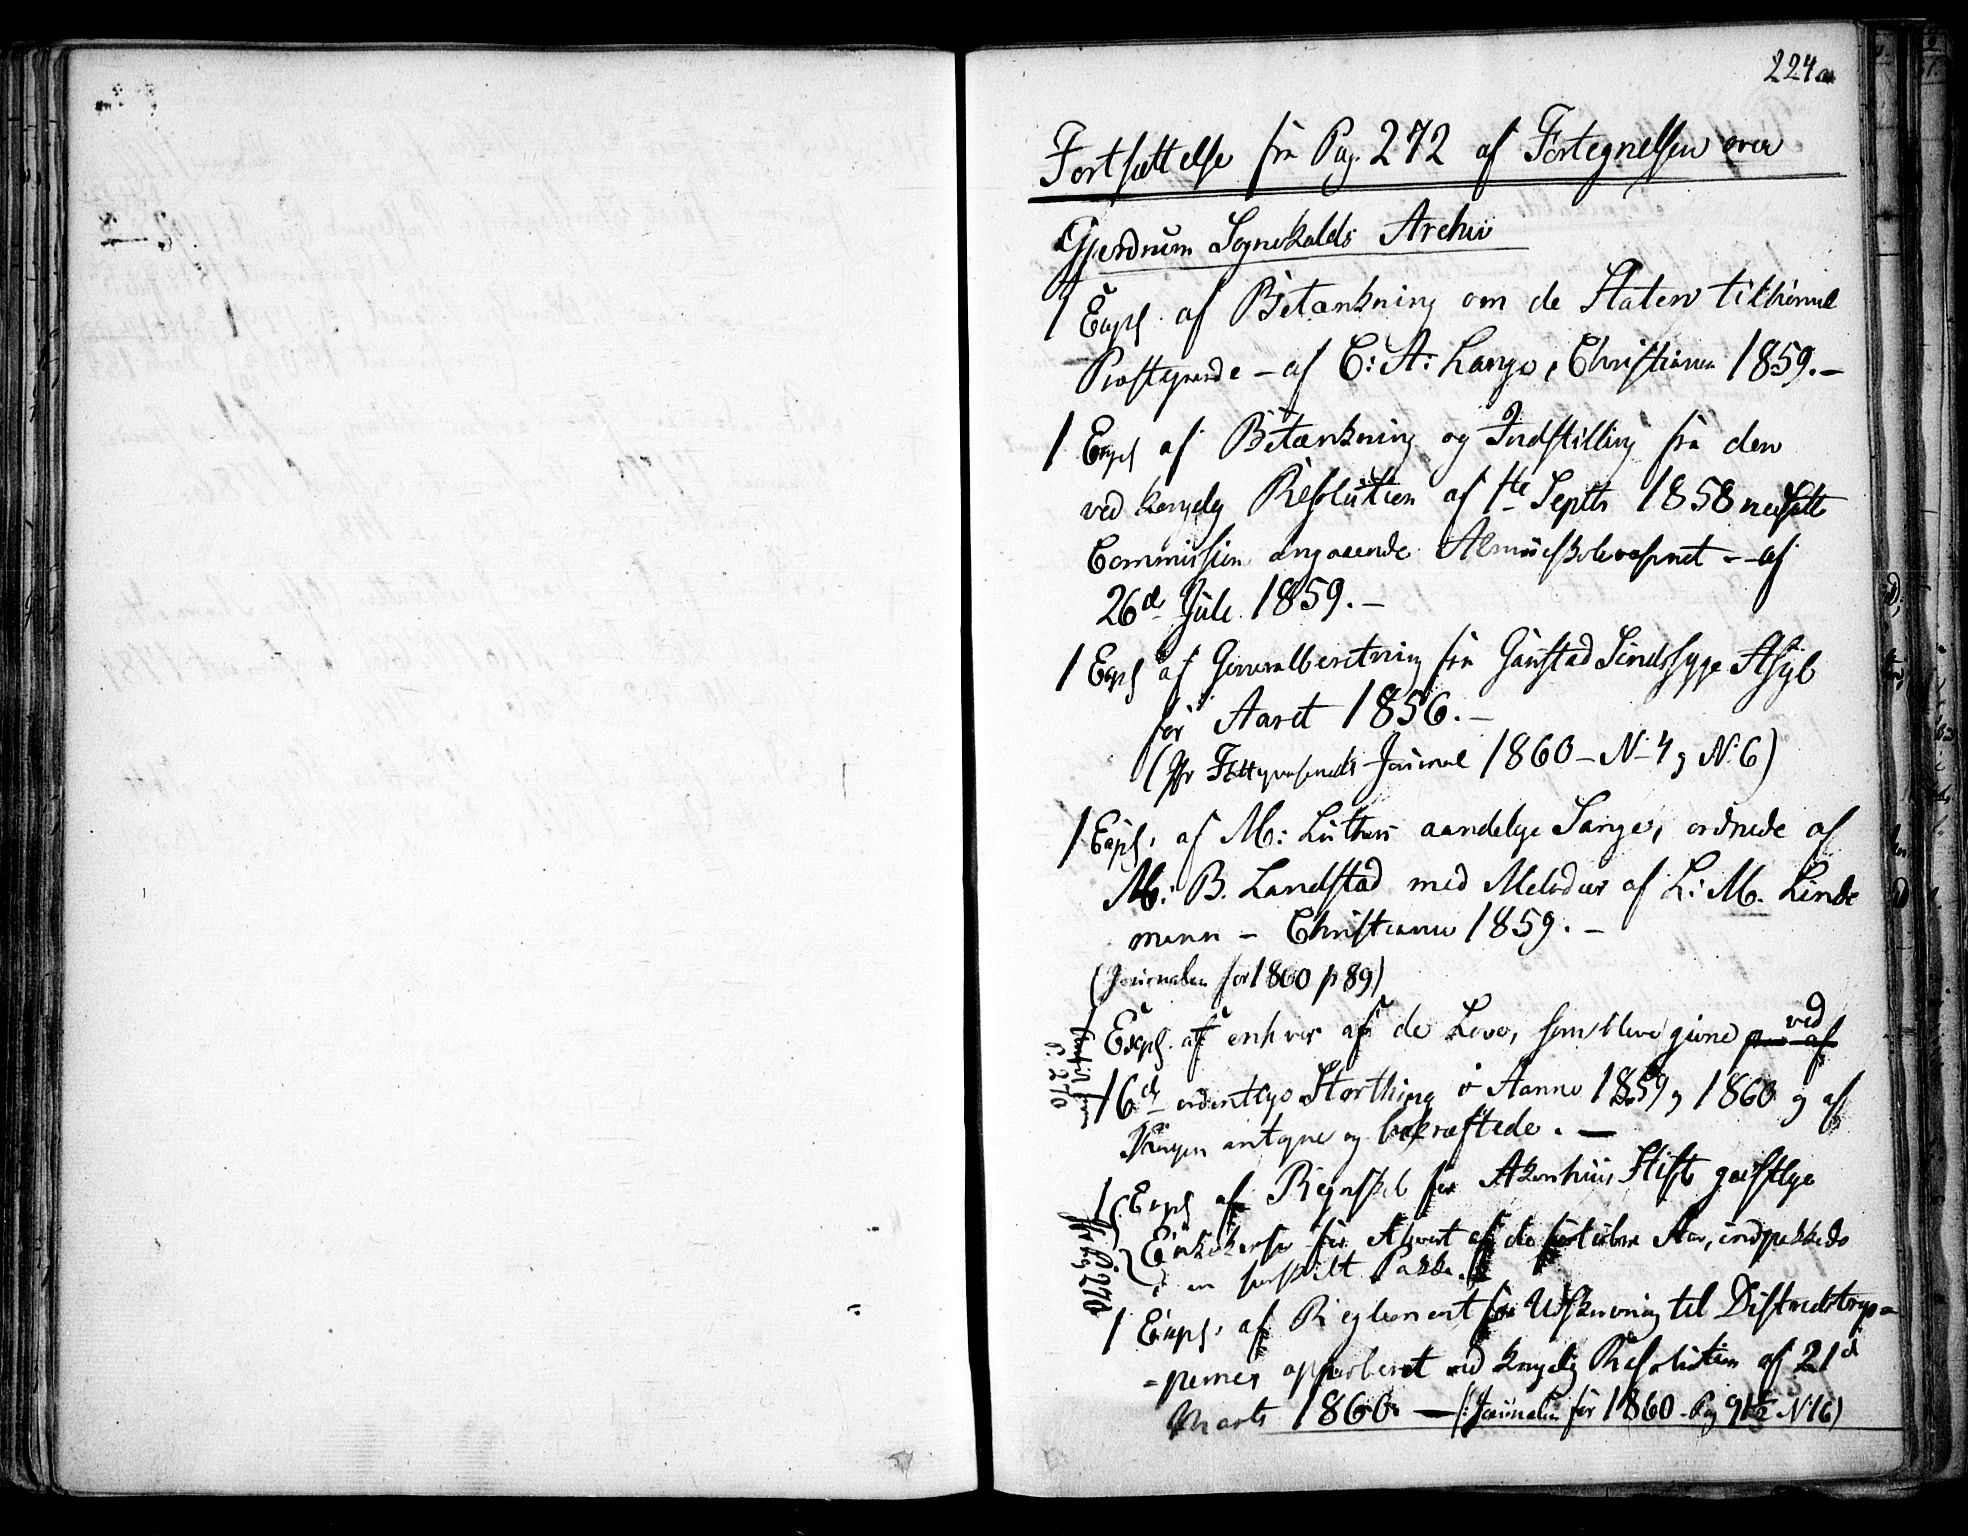 224a
Fortsættelse fra Pag. 272 af Fortegnelsen over
Gjerdrum Sognekalds Archiv
1 Expl af Betænkning om de Staten tilhørende
Præstegaarde – af C: A: Lange, Christiania 1859. –
1 Expl af Betænkning og Indstilling fra den
ved kongelig Resolution af 1ste Septbr 1858 nedsatte
Commission angaaende Almueskolevæsenet – af
26de Juli 1859. –
1 Expl af Generalberetning fra Gaustad Sindssyge Asyl
for Aaret 1856. –
(Jfr Fattigvæsenets Journal 1860 – N 4 og N. 6)
1 Expl. af M: Luthers aandelige Sange, ordnede af
M: B. Landstad med Melodier af L: M. Linde
mann – Christiania 1859. –
(Journalen for 1860 p 89)
1 Expl. af enhver af de Love, som bleve givne ved
16de ordentlige Storthing i Aarene 1859 og 1860 og af
Kongen antagne og bekræftede. –
p. 270
1 Expl af Regnskab for Akershuus Stifts geistlige
Enkekasse for hvert af de forløbne Aar, indpakkede
i en særskilt Pakke.
Jfr Pag 270
1 Expl. af Reglement for Udskrivning til Distrikstrop=
=perne, approberet ved kongelig Resolution af 21de
Marts 1860 – (: Journalen for 1860 Pag 91½ N. 16)